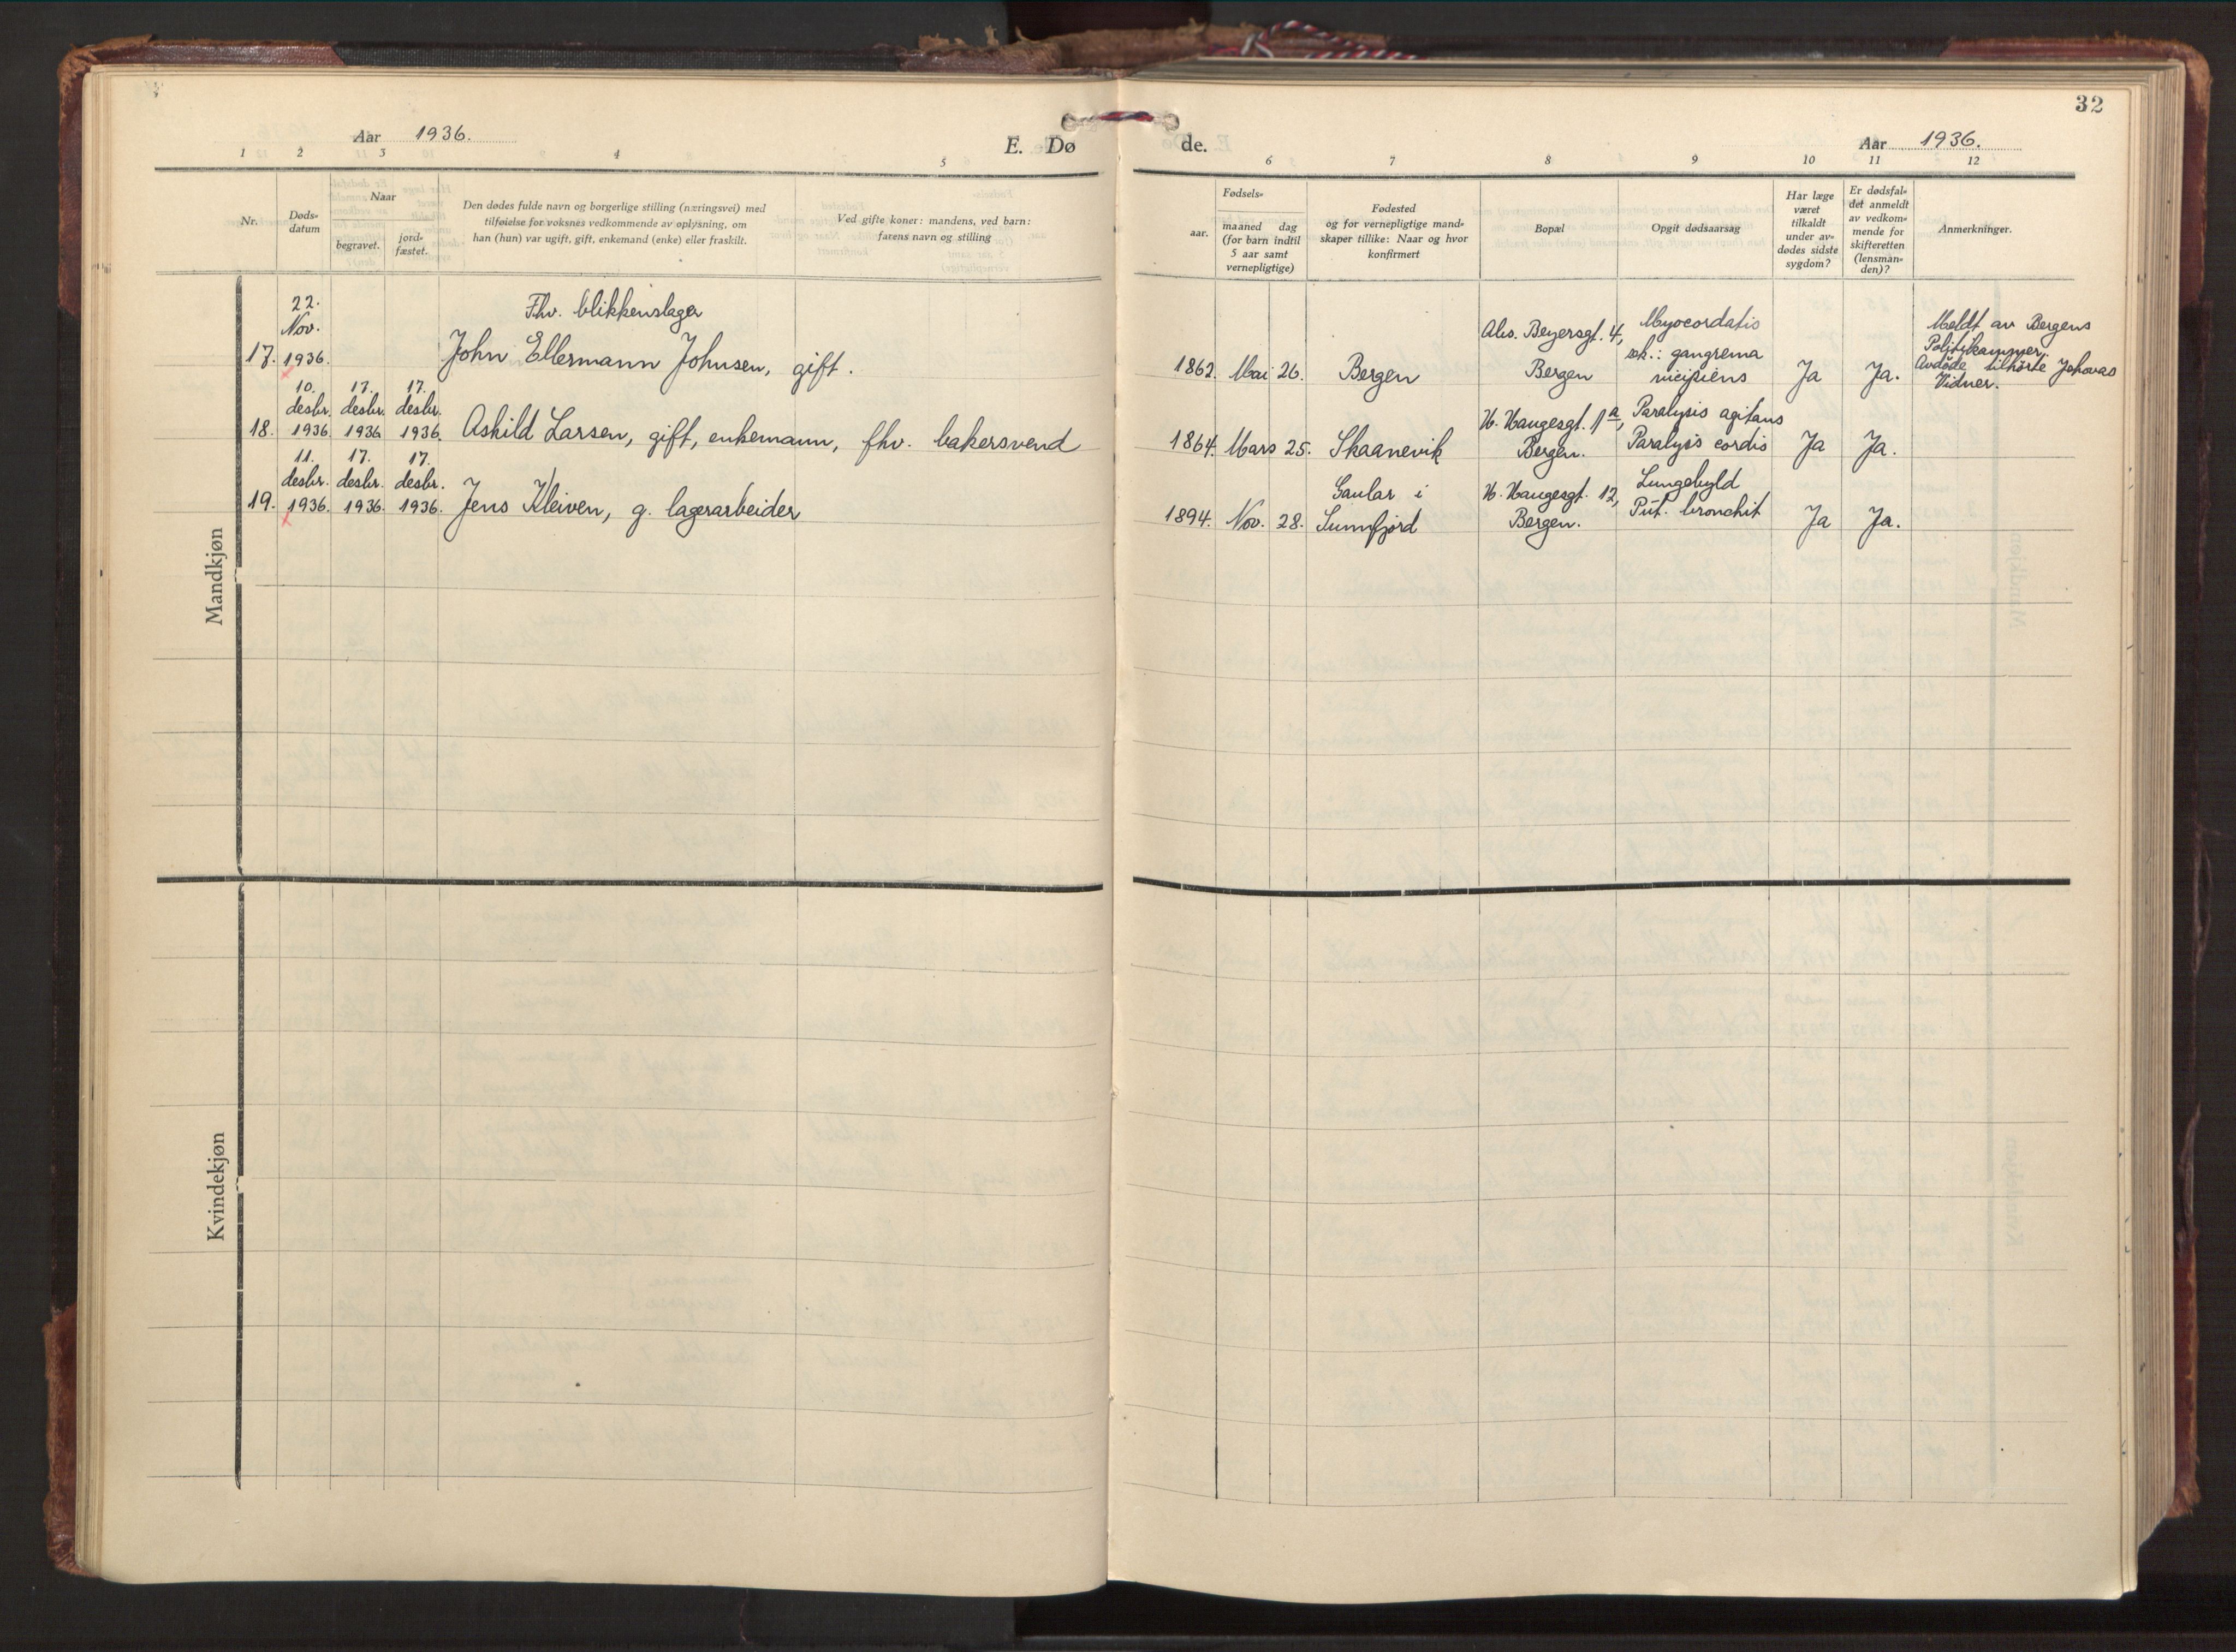 32
Aar 1936.
E. Dø
de.
Aar 1936.
1 2 3 4 5
6 7 8 9 10 11 12
Nr.
Døds-
datum
Naar
begravet.
jord-
fæstet.
Den dødes fulde navn og borgerlige stilling (næringsvei) med
tilføielse for voksnes vedkommende av oplysning, om
han (hun) var ugift, gift, enkemand (enke) eller fraskilt.
Ved gifte koner: mandens, ved barn:
farens navn og stilling
Fødsels-
aar.
maaned dag
(for barn indtil
5 aar samt
vernepligtige)
Fødested
og for vernepligtige mand-
skaper tillike: Naar og hvor
konfirmert
Bopæl
Opgit dødsaarsag
Har læge
været
tilkaldt
under av-
dødes sidste
sygdom?
Er dødsfal-
det anmeldt
av vedkom-
mende for
skifteretten
(lensman-
den)?
Anmerkninger.
Mandkjøn
22.
Nov.
17. 1936.
Fhv. blikkenslager
John Ellermann Johnsen, gift.
1862. Mai 26. Bergen
Abs. Beyersgt. 4,
Bergen
Myocordatis
sek.: gangrema
incipiens
Ja Ja.
Meldt av Bergens
Politikammer.
Avdøde tilhørte Jehovas
Vidner.
10. 17. 17.
desbr. desbr. desbr.
18. 1936. 1936 1936. Askild Larsen, gift, enkemann, fhv. bakersvend
1864. Mars 25. Skaanevik
H. Haugesgt. 1a,
Bergen.
Paralysis agitans
Paralysis cordis
Ja Ja.
11. 17. 17.
desbr. desbr. desbr.
19. 1936. 1936. 1936. Jens Kleiven, g. lagerarbeider
1894. Nov. 28.
Gaular i
Sunnfjord
H. Haugesgt. 12,
Bergen.
Lungebyld
Put. bronchit
Ja Ja.
Kvindekjøn